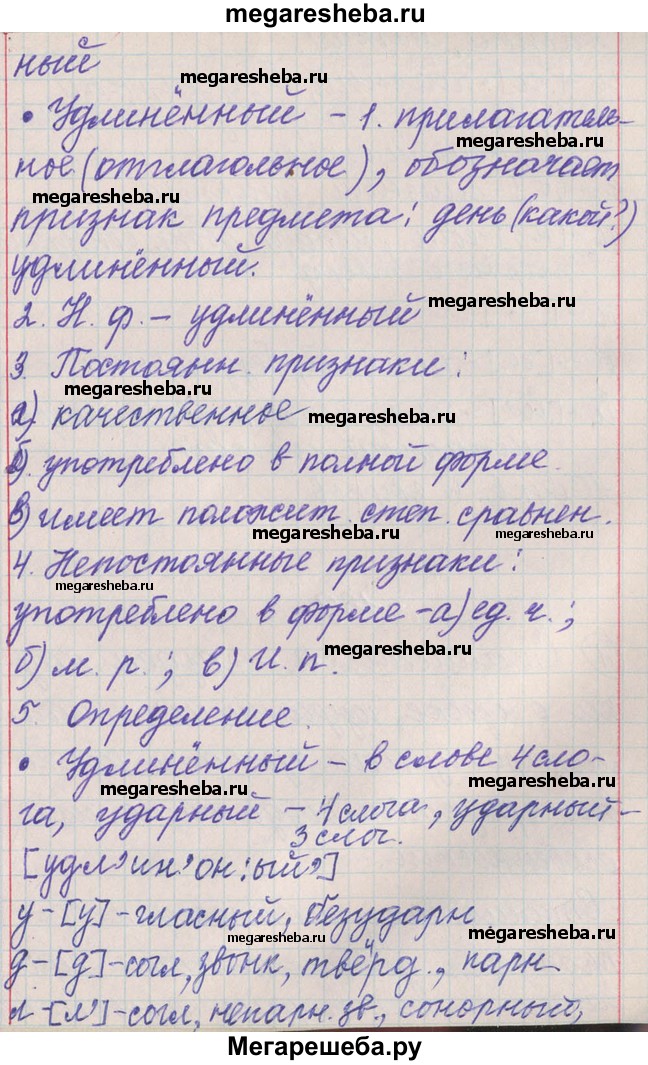 megaresheba.ru
ный
megaresheba.ru
• Удлинённый – 1. прилагатель-
megaresheba.ru
ное (отглагольное), обозначает
megaresheba.ru
признак предмета: день (какой?)
удлинённый.
2. Н. ф. – удлинённый
megaresheba.ru
3. Постоянн. признаки:
megaresheba.ru
а) качественное
megaresheba.ru
б) употреблено в полной форме.
в) имеет положит. степ. сравнен.
megaresheba.ru
4. Непостоянные признаки:
megaresheba.ru
употреблено в форме – а) ед. ч.;
б) м. р.; в) И. п.
megaresheba.ru
5. Определение.
• Удлинённый – в слове 4 сло-
megaresheba.ru
га, ударный – 4 слога, ударный –
megaresheba.ru
3 слог.
[удл’ин’он:ый’]
у – [у] – гласный, безударн
megaresheba.ru
megaresheba.ru
д – [д] – согл, звонк, твёрд., парн
л – [л’] – согл, непарн. зв., сонорный,
Мегарешеба.ру